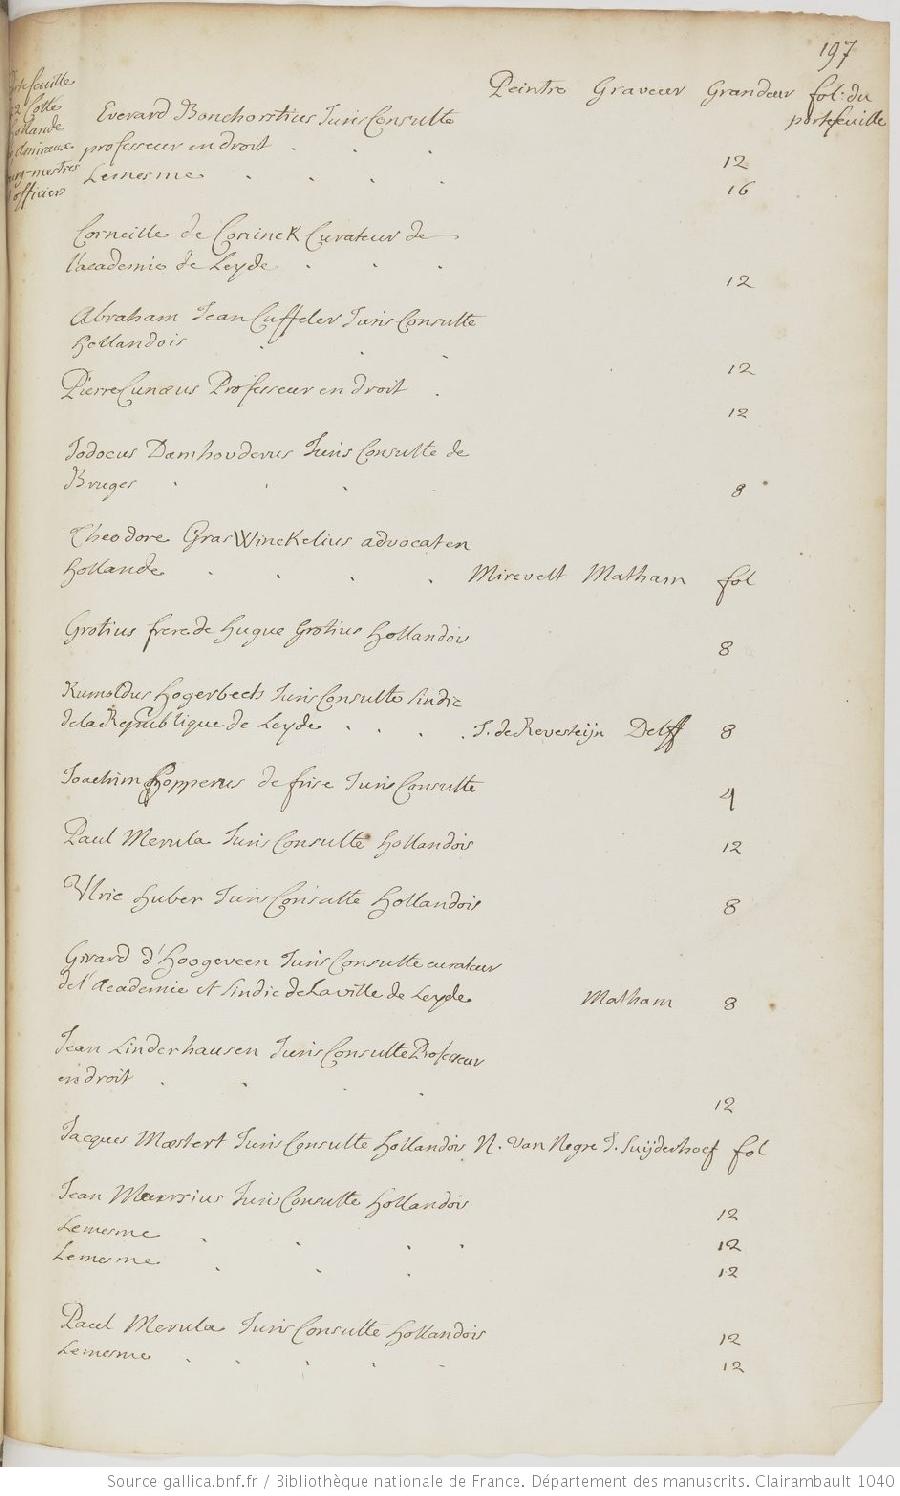 197
Peintre Graveur Grandeur fol. du
portefeuille
Hollande
officiers
Everard Bonchorstius Juris Consulte
professeur en droit . . . 12
Lemesme . . . . 16
Corneille de Coninck Curateur de
l'academie de Leyde . . . 12
Abraham Jean Cuffeler Juris Consulte
hollandois . . 12
Pierre Cunæus Professeur en droit . 12
Jodocus Damhouderus Juris Consulte de
Bruges . . . 8
Theodore GrasWinckelius advocat en
hollande . . . . Mirevelt Matham fol
Grotius frere de hugue Grotius hollandois 8
Rumoldus hogerbeets Juris Consulte sindic
de la Republique de Leyde . . . . J. de Revesteijn Delff 8
Joachim hopperus de frise Juris Consulte 4
Paul Merula Juris Consulte hollandois 12
Vlric huber Juris Consulte hollandois 8
Girard d'Hoogeveen Juris Consulte curateur
de l'academie et sindic de la ville de Leyde Matham 8
Jean Linderhausen Juris Consulte Professeur
en droit . . . . 12
Jacques Mæstert Juris Consulte hollandois N. Van Negre J. Suijderhoef fol
Jean Meursius Juris Consulte hollandois 12
Lemesme . . . . 12
Lemesme . . . 12
Paul Merula Juris Consulte hollandois 12
Lemesme . . . . . 12
Source gallica.bnf.fr / Bibliothèque nationale de France. Département des manuscrits. Clairambault 1040